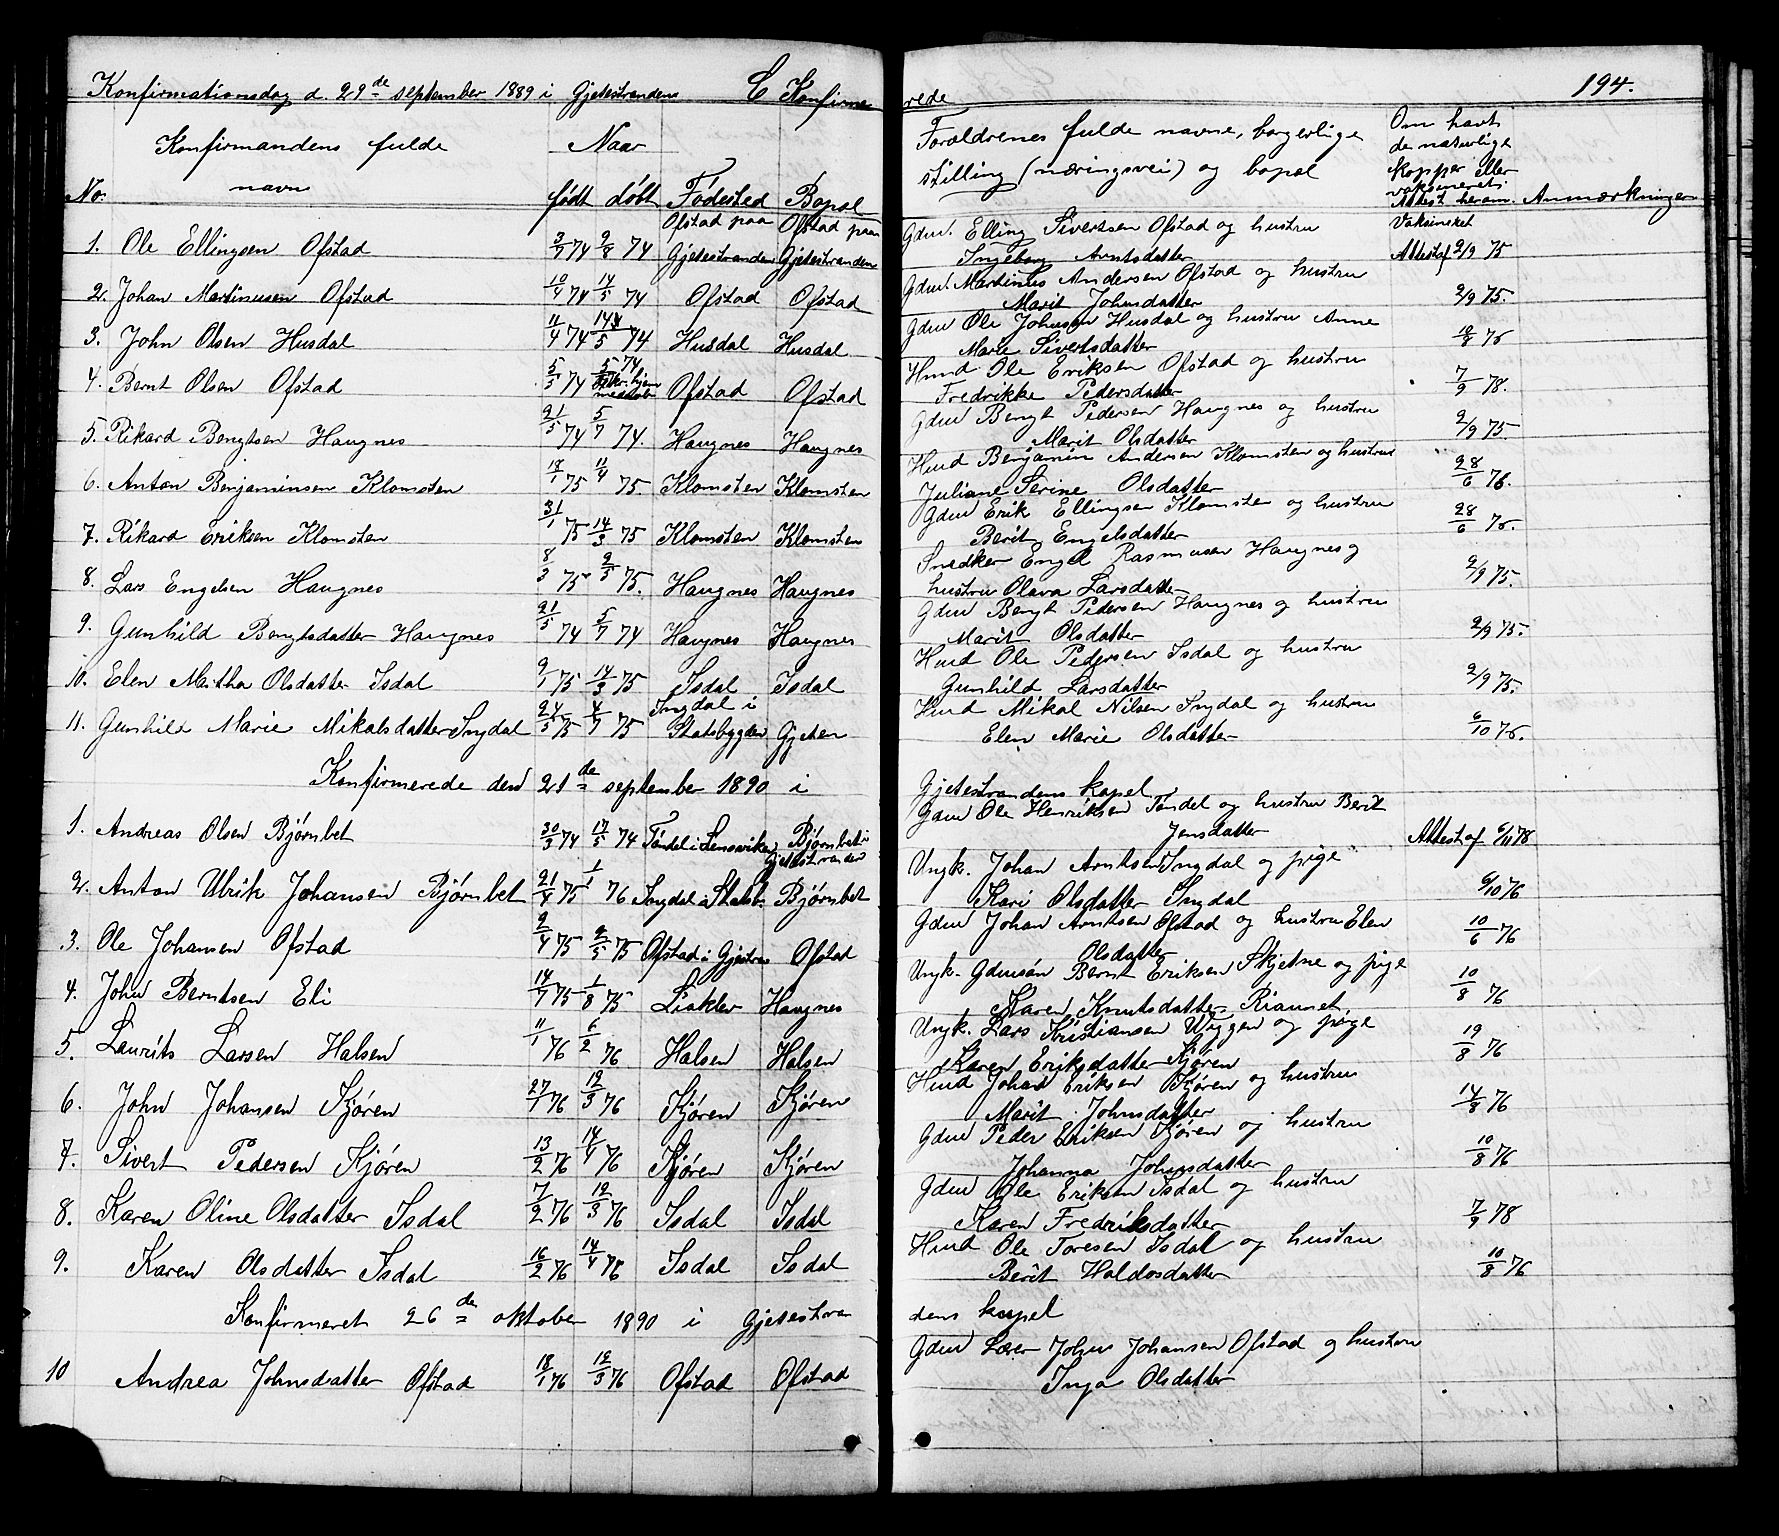 194.
Konfirmationsdag d. 29de september 1889 i Gjetestrandens C Konfirmerede
No. Konfirmandens fulde navn Naar født døbt Fødested Bopæl Forældrenes fulde navne, borgerlige stilling (næringsvei) og bopæl Om havt de naturlige kopper eller vaksineret: Attest herom. Anmærkninger
1. Ole Ellingsen Ofstad 74 74 Ofstad paa Gjetestranden Ofstad paa Gjetestranden Gdm. Elling Sivertsen Ofstad og hustru Ingeborg Arntsdatter Vaksineret Attest af 2/9 75
2. Johan Martinusen Ofstad 10/4 74 14/5 74 Ofstad Ofstad Gdm. Martinus Andersen Ofstad og hustru Marit Johnsdatter 2/9 75.
3. John Olsen Husdal 11/4 74 14/5 74 Husdal Husdal Gdm Ole Johnsen Husdal og hustru Anne Marie Sivertsdatter
4. Bernt Olsen Ofstad 5/5 74 74 Ofstad Ofstad Hmd Ole Eriksen Ofstad og hustru Fredrikke Pedersdatter 7/9 78.
5. Rikard Bengtsen Haugnes 21/5 74 5/7 74. Haugnes Haugnes Gdm Bengt Pedersen Haugnes og hustru Marit Olsdatter 2/9 75.
6. Anton Benjaminsen Klomsten 75 11/4 75. Klomsten Klomsten Hmd Benjamin Andersen Klomsten og hustru Juliane Serine Olsdatter 28/6 76.
7. Rikard Eriksen Klomsten 31/1 75 14/3 75 Klomsten Klomsten Gdm Erik Ellingsen Klomsten og hustru Berit Engelsdatter 28/6 76.
8. Lars Engelsen Haugnes 8/3 75 2/5 75. Haugnes Haugnes Snedker Engel Rasmusen Haugnes og hustru Olava Larsdatter 2/9 75.
9. Gunhild Bengtsdatter Haugnes 21/5 74 5/7 74 Haugnes Haugnes Gdm Bengt Pedersen Haugnes og hustru Marit Olsdatter 2/9 75.
10. Elen Mætha Olsdatter Isdal 9/1 75 14/3 75 Isdal Isdal Hmd Ole Pedersen Isdal og hustru Gunhild Larsdatter 2/9 75.
11. Gunhild Marie Mikalsdatter Ingdal 24/5 75 4/7 75 Ingdal i Statsbygden Gjeten Hmd Mikal Nilsen Ingdal og hustru Elen Marie Olsdatter 6/10 76.
Konfirmerede den 21de september 1890 i Gjetestrandens kapel
1. Andreas Olsen Bjørnbet 30/3 74 17/5 74 Tøndel i Lensviken Bjørnbet i Gjetestranden Gdm Ole Henriksen Tøndel og hustru Berit Jensdatter Attest af 6/11 78
2. Anton Ulrik Johansen Bjørnbet 21/4 75 1/1 76 Ingdal i Statsb. Bjørnbet Ungk. Johan Arntsen Ingdal og pige Kari Olsdatter Ingdal 6/10 76
3. Ole Johansen Ofstad 2/4 75 2/5 75 Ofstad i Gjestran Ofstad Gdm Johan Arntsen Ofstad og hustru Elen Olsdatter 10/6 76
4. John Berntsen Eli 14/7 75 1/8 75 Liakler Haugnes Ungk. Gdmsøn Bernt Eriksen Skjetne og pige Maren Knutsdatter Riaunet 10/8 76
5. Laurits Larsen Halsen 11/1 76 6/2 76 Halsen Halsen Ungk. Lars Kristiansen Wiggen og pige Karen Eriksdatter Kjøren 19/8 76
6. John Johansen Kjøren 27/1 76 12/3 76 Kjøren Kjøren Hmd Johan Eriksen Kjøren og hustru Marit Johnsdatter 14/8 76
7. Sivert Pedersen Kjøren 13/2 76 14/4 76 Kjøren Kjøren Gdm Peder Eriksen Kjøren og hustru Johanna Johnsdatter 10/8 76
8. Karen Oline Olsdatter Isdal 7/2 76 12/3 76 Isdal Isdal Gdm Ole Eriksen Isdal og hustru Karen Fredriksdatter 7/9 78
9. Karen Olsdatter Isdal 16/2 76 14/4 76 Isdal Isdal Hmd Ole Toresen Isdal og hustru Berit Haldosdatter 10/8 76
Konfirmeret 26de oktober 1890 i Gjetestrandens kapel
10 Andrea Johnsdatter Ofstad 18/1 76 12/3 76 Ofstad Ofstad Gdm Lærer John Johansen Ofstad og hustru Inga Olsdatter